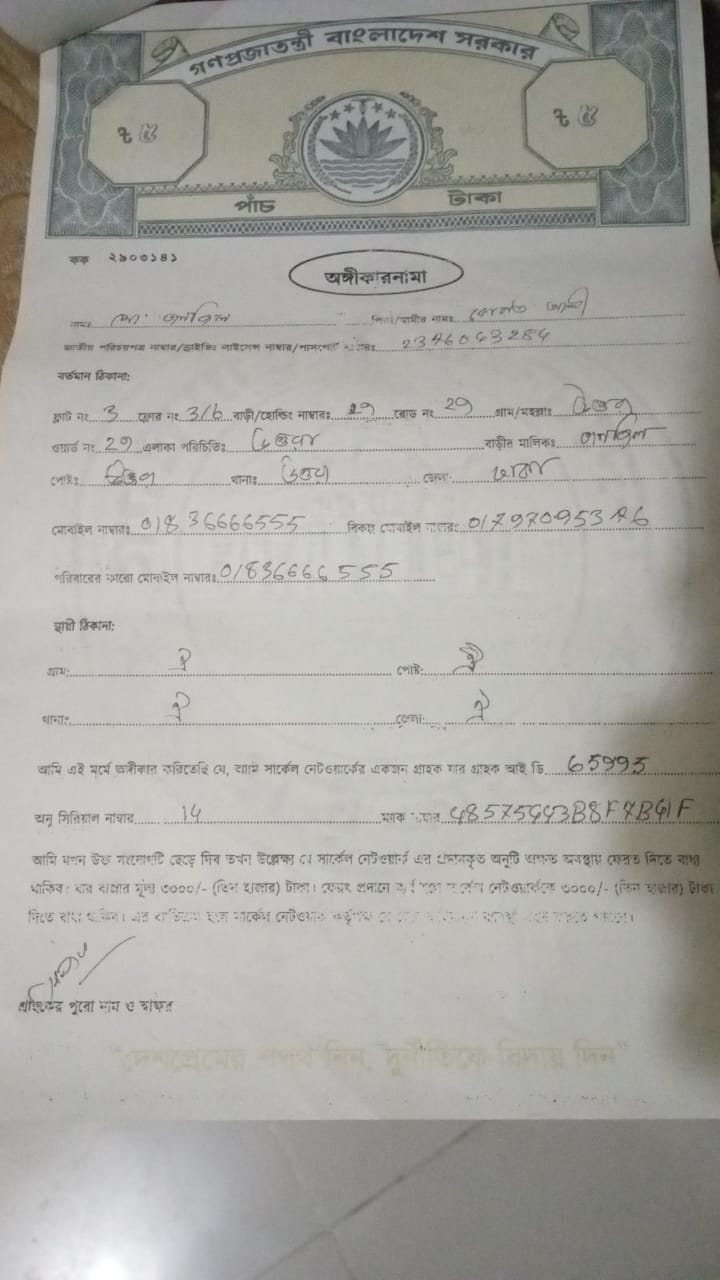 গণপ্রজাতন্ত্রী বাংলাদেশ সরকার
৳ ৫
৳ ৫
পাঁচ টাকা
কক ২৯০৩১৪১
অঙ্গীকারনামা
নামঃ মোঃ পিতা/স্বামীর নামঃ আলী
জাতীয় পরিচয়পত্র নাম্বার/ড্রাইভিং লাইসেন্স নাম্বার/পাসপোর্ট নাম্বারঃ 2346043284
বর্তমান ঠিকানা:
ফ্লাট নং 3 ফ্লোর নং 3/b বাড়ী/হোল্ডিং নাম্বারঃ 29 রোড নং 29 গ্রাম/মহল্লাঃ
ওয়ার্ড নং 29 এলাকা পরিচিতিঃ বাড়ীর মালিকঃ
পোষ্টঃ থানাঃ জেলা: ঢাকা
মোবাইল নাম্বারঃ 01836666555 বিকল্প মোবাইল নাম্বারঃ
পরিবারের কারো মোবাইল নাম্বারঃ 01836666555
স্থায়ী ঠিকানা:
গ্রাম: ঐ পোষ্ট: ঐ
থানাঃ ঐ জেলা: ঐ
আমি এই মর্মে অঙ্গীকার করিতেছি যে, আমি সার্কেল নেটওয়ার্কের একজন গ্রাহক যার গ্রাহক আই ডি 65995
অনু সিরিয়াল নাম্বার 14 ম্যাক নাম্বার
আমি যখন উক্ত সংযোগটি ছেড়ে দিব তখন উল্লেক্ষ্য যে সার্কেল নেটওয়ার্ক এর প্রদানকৃত অনুটি অক্ষত অবস্থায় ফেরত দিতে বাধ্য
থাকিব। যার বাজার মূল্য ৩০০০/- (তিন হাজার) টাকা। ফেরৎ প্রদানে সার্কেল নেটওয়ার্ককে ৩০০০/- (তিন হাজার) টাকা
দিতে বাধ্য থাকিব। এর ব্যতিক্রম হলে সার্কেল নেটওয়ার্ক কর্তৃপক্ষ
গ্রাহকের পুরো নাম ও স্বাক্ষর
"দেশপ্রেমের শপথ নিন, দুর্নীতিকে বিদায় দিন"